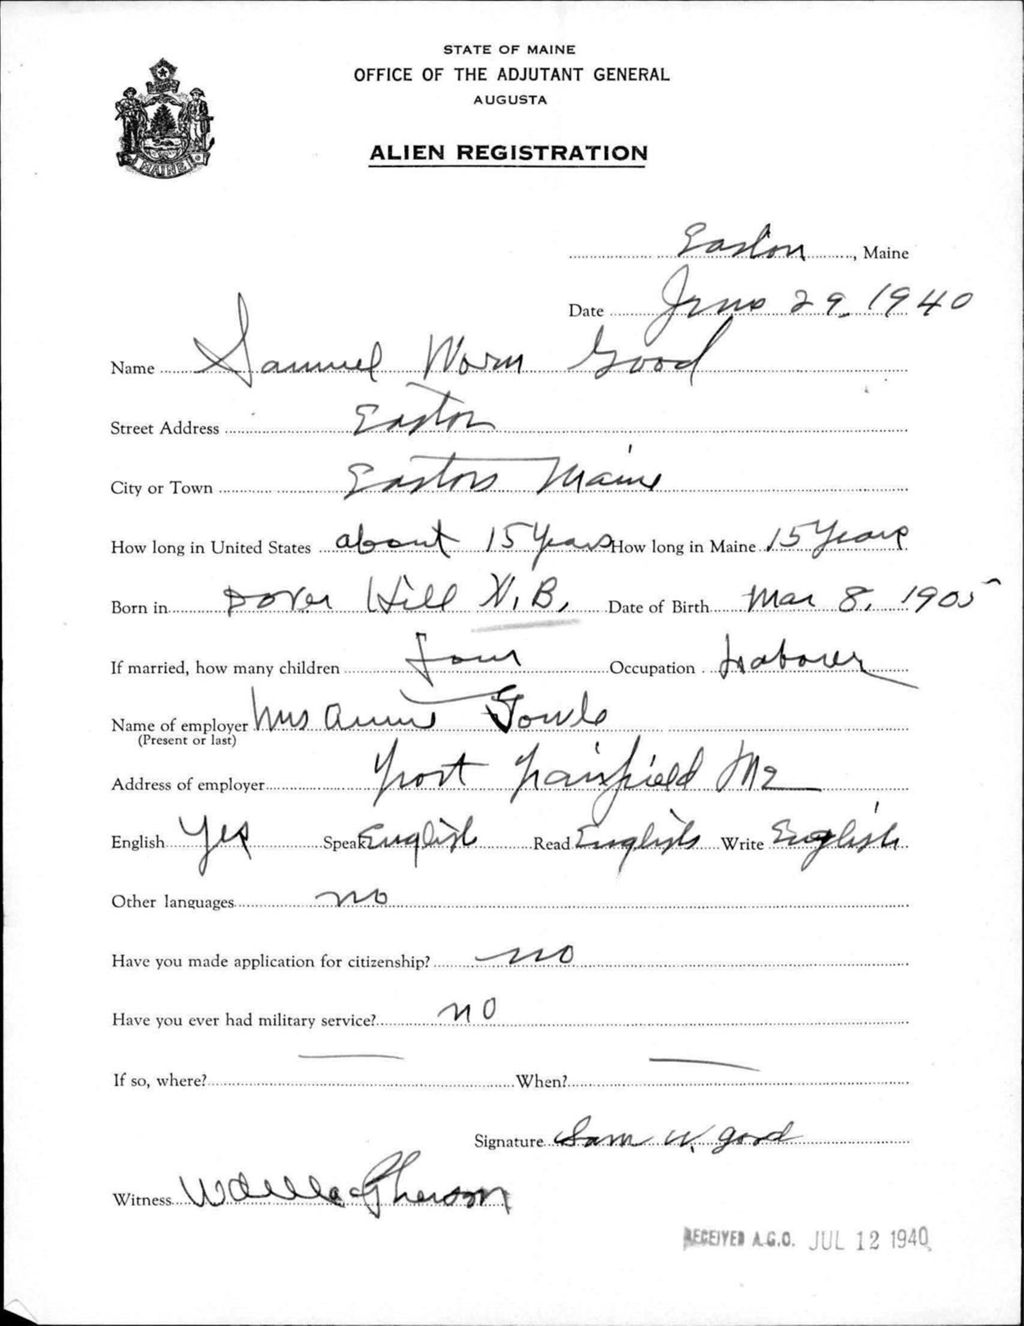 STATE OF MAINE
OFFICE OF THE ADJUTANT GENERAL
AUGUSTA
MAINE
ALIEN REGISTRATION
Easton, Maine
Date June 29, 1940
Name Samuel Worm Good
Street Address Easton
City or Town Easton Maine
How long in United States about 15 Years How long in Maine 15 Years
Born in Dover Hill N.B. Date of Birth Mar 8, 1905
If married, how many children four Occupation Laborer
Name of employer Mrs Annie
(Present or last)
Address of employer Fort Fairfield Me
English Yes Speak English Read English Write English
Other languages no
Have you made application for citizenship? no
Have you ever had military service? no
If so, where? — When? —
Signature Sam W. Good
Witness
RECEIVED A.G.O. JUL 12 1940